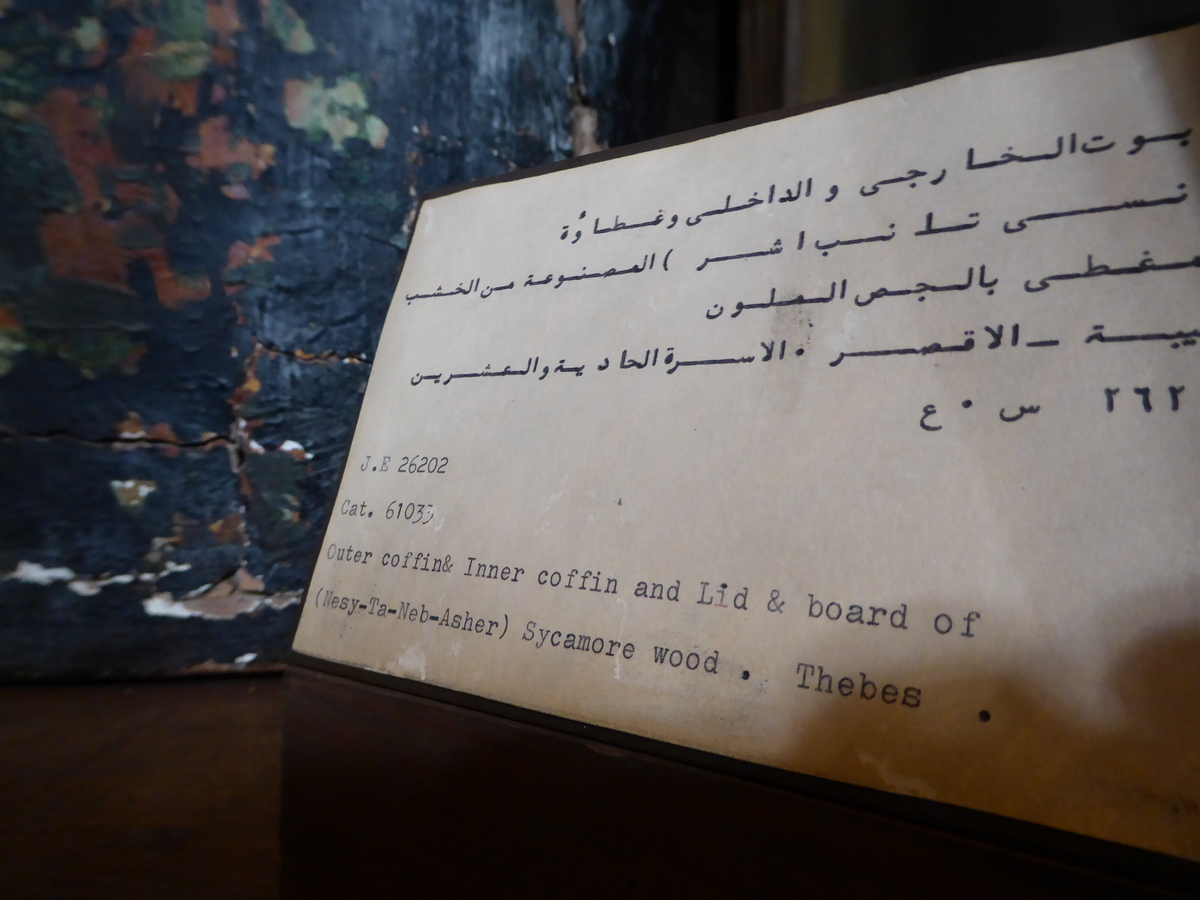 ـوت الخارجى و الداخلى وغطاؤة
نسى تا نب اشر ) المصنوعة من الخشب
مغطى بالجص الملون
ـيبة - الاقصر . الاسرة الحادية والعشرين
س . ع
J.E 26202
Cat. 61033
Outer coffin& Inner coffin and Lid & board of
(Nesy-Ta-Neb-Asher) Sycamore wood . Thebes .